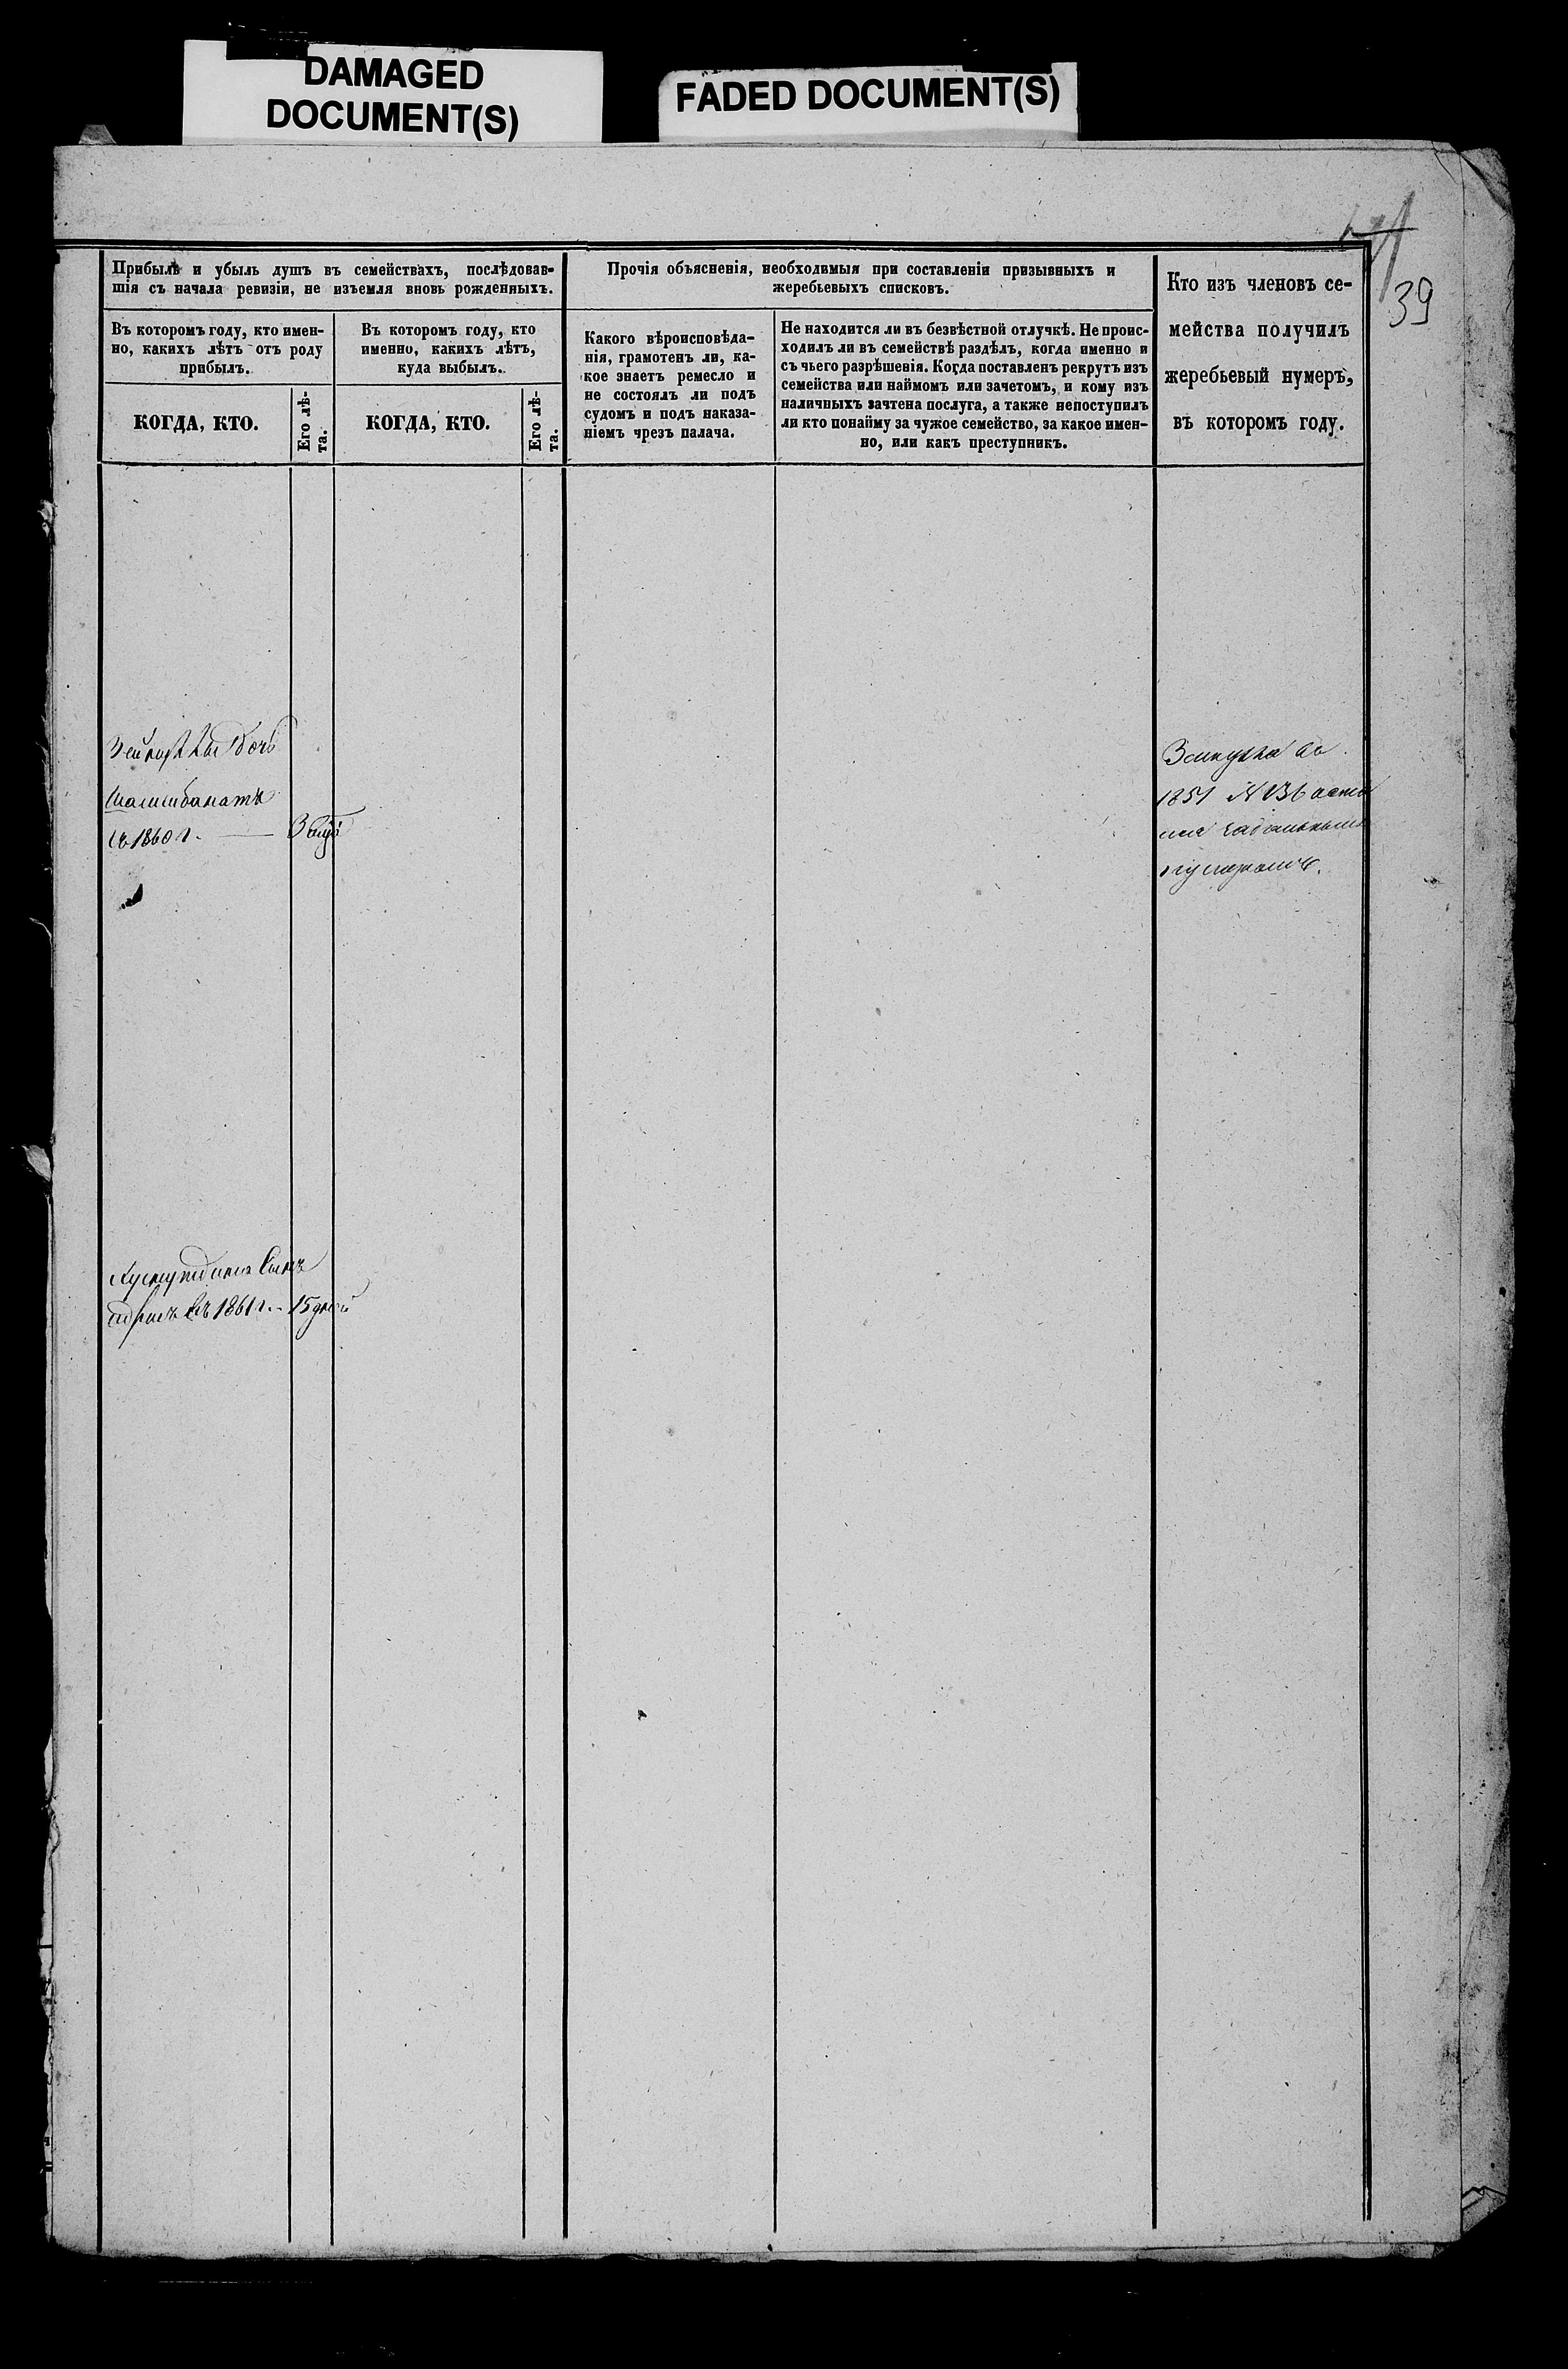 DAMAGED
DOCUMENT(S)
FADED DOCUMENT(S)
39
Прибыль и убыль душъ въ семействахъ, послѣдовав-
шія съ начала ревизіи, не изъемля вновь рожденныхъ.
Въ которомъ году, кто имен-
но, какихъ лѣтъ отъ роду
прибылъ.
КОГДА, КТО.
Его лѣ-
та.
Въ которомъ году, кто
именно, какихъ лѣтъ,
куда выбылъ.
КОГДА, КТО.
Его лѣ-
та.
Прочія объясненія, необходимыя при составленіи призывныхъ и
жеребьевыхъ списковъ.
Какого вѣроисповѣда-
нія, грамотенъ ли, ка-
кое знаетъ ремесло и
не состоялъ ли подъ
судомъ и подъ наказа-
ніемъ чрезъ палача.
Не находится ли въ безвѣстной отлучкѣ. Не проис-
ходилъ ли въ семействѣ раздѣлъ, когда именно и
съ чьего разрѣшенія. Когда поставленъ рекрутъ изъ
семейства или наймомъ или зачетомъ, и кому изъ
наличныхъ зачтена послуга, а также непоступилъ
ли кто понайму за чужое семейство, за какое имен-
но, или какъ преступникъ.
Кто изъ членовъ се-
мейства получилъ
жеребьевый нумеръ,
въ которомъ году.
дочь
съ 1860 г.
1851 №
Сынъ
съ 1861 г. - 15 дней